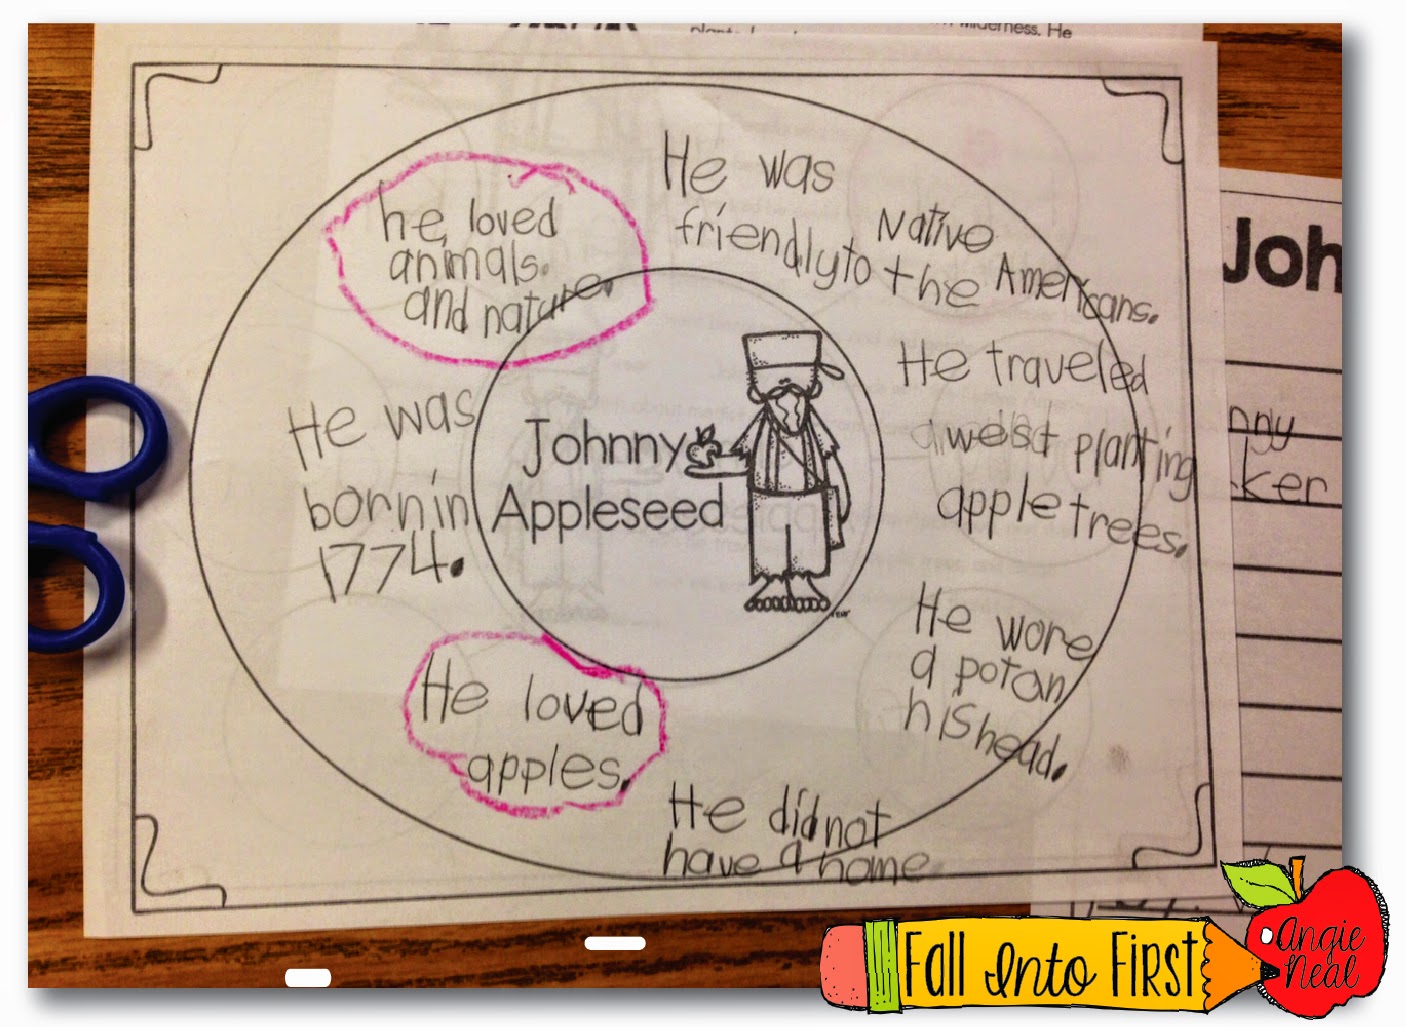 wilderness. He
he loved
animals.
and nature.
He was
friendly to the Native Americans.
He traveled
awest planting
apple trees.
He wore
a pot on
his head.
He did not
have a home.
He loved
apples.
He was
born in
1774.
Johnny
Appleseed
Joh
nny
ker
Fall Into First
Angie
Neal